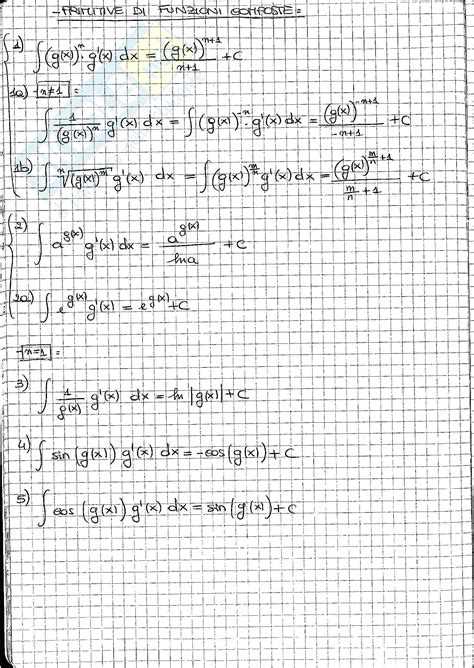 - PRIMITIVE DI FUNZIONI COMPOSTE =
1) ∫(g(x))^n · g'(x) dx = (g(x))^(n+1) / (n+1) + C
1a) - n≠1 =
∫ 1/(g(x))^n g'(x) dx = ∫(g(x))^(-n) · g'(x) dx = (g(x))^(-n+1) / (-n+1) + C
1b) ∫ ⁿ√(g(x))^m g'(x) dx = ∫(g(x))^(m/n) g'(x) dx = (g(x))^(m/n+1) / (m/n + 1) + C
2) ∫ a^(g(x)) g'(x) dx = a^(g(x)) / ln a + C
2a) ∫ e^(g(x)) g'(x) = e^(g(x)) + C
- n=1 =
3) ∫ 1/g(x) g'(x) dx = ln |g(x)| + C
4) ∫ sin (g(x)) g'(x) dx = -cos(g(x)) + C
5) ∫ cos (g(x)) g'(x) dx = sin(g(x)) + C